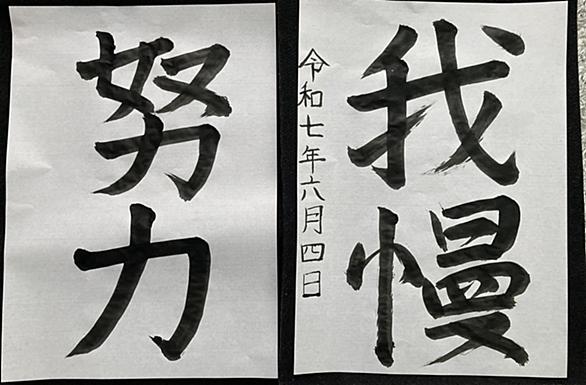 我慢
令和七年六月四日
努力